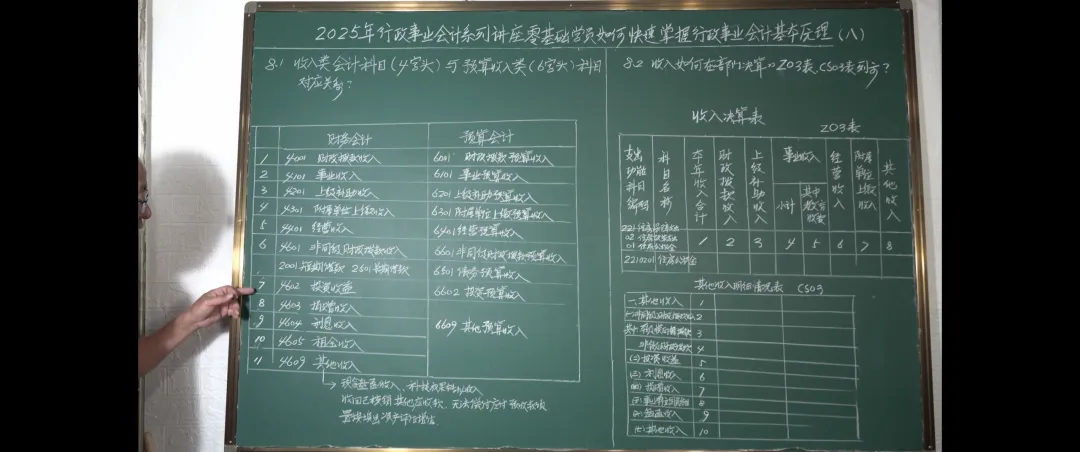 2025年行政事业会计系列讲座零基础学员如何快速掌握行政事业会计基本原理（八）
8.1 收入类会计科目（4字头）与预算收入类（6字头）科目
对应关系？
财务会计 预算会计
1 4001 财政拨款收入 6001 财政拨款预算收入
2 4101 事业收入 6101 事业预算收入
3 4201 上级补助收入 6201 上级补助预算收入
4 4301 附属单位上缴收入 6301 附属单位上缴预算收入
5 4401 经营收入 6401 经营预算收入
6 4601 非同级财政拨款收入 6601 非同级财政拨款预算收入
2001 短期借款 2601 长期借款 6501 债务预算收入
7 4602 投资收益 6602 投资预算收入
8 4603 捐赠收入
9 4604 利息收入 6609 其他预算收入
10 4605 租金收入
11 4609 其他收入
现金盘盈收入、科技成果转化收入
收回已核销其他应收款、无法偿付应付预收款项
置换换出资产评估增值
8.2 收入如何在部门决算的Z03表、CS03表列示？
收入决算表
Z03表
支出功能科目编码 科目名称 本年收入合计 财政拨款收入 上级补助收入 事业收入 经营收入 附属单位上缴收入 其他收入
小计 其中教育收费
221 住房保障支出
02 住房改革支出
01 住房公积金 1 2 3 4 5 6 7 8
2210201 住房公积金
其他收入明细情况表 CS03
一、其他收入 1
2
3
4
(二)投资收益 5
(三)利息收入 6
(四)捐赠收入 7
8
9
(七)其他收入 10